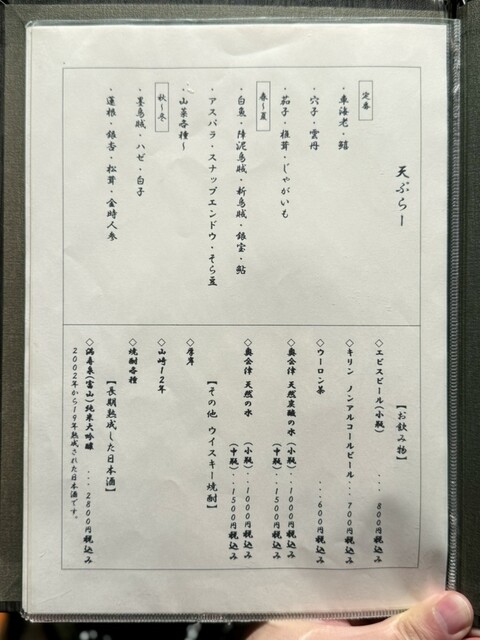 天ぷらー
定番
・車海老・鱚
・穴子・雲丹
・茄子・椎茸・じゃがいも
春〜夏
・白魚・障泥烏賊・新烏賊・銀宝・鮎
・アスパラ・スナップエンドウ・そら豆
・山菜各種〜
秋〜冬
・墨烏賊・ハゼ・白子
・蓮根・銀杏・松茸・金時人参
【お飲み物】
◇エビスビール(小瓶) ...800円税込み
◇キリン ノンアルコールビール...700円税込み
◇ウーロン茶 ...600円税込み
◇奥会津 天然炭酸の水 (小瓶)...1000円税込み
(中瓶)...1500円税込み
◇奥会津 天然の水 (小瓶)...1000円税込み
(中瓶)...1500円税込み
【その他 ウイスキー焼酎】
◇厚岸
◇山崎12年
◇焼酎各種
【長期熟成した日本酒】
◇満寿泉(富山)純米大吟醸 ...2800円税込み
2002年から19年熟成された日本酒です。